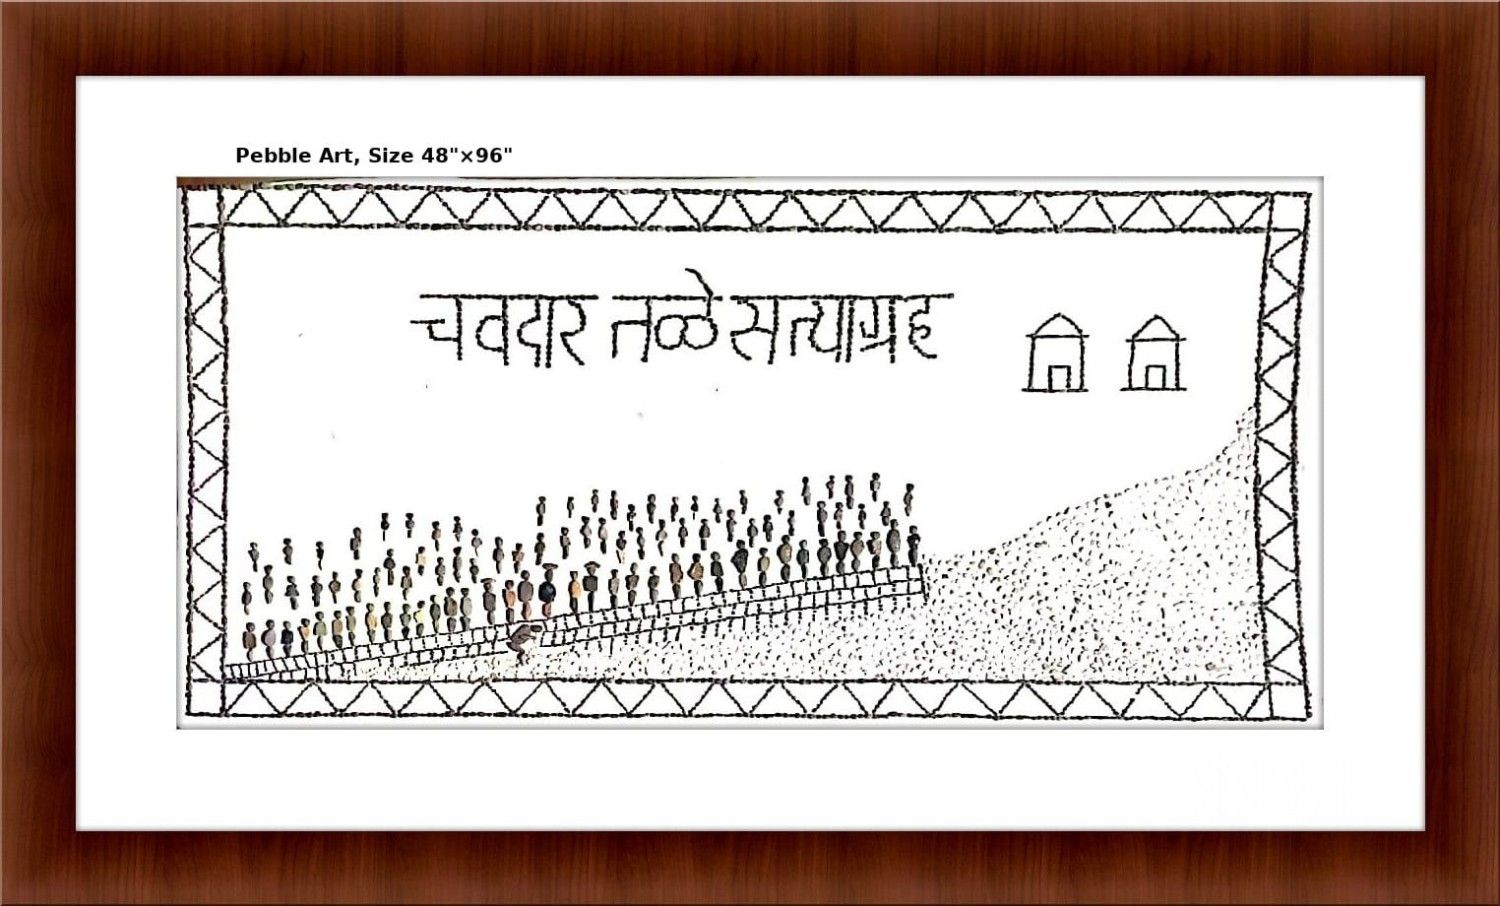 Pebble Art, Size 48"×96"
चवदार तळे सत्याग्रह